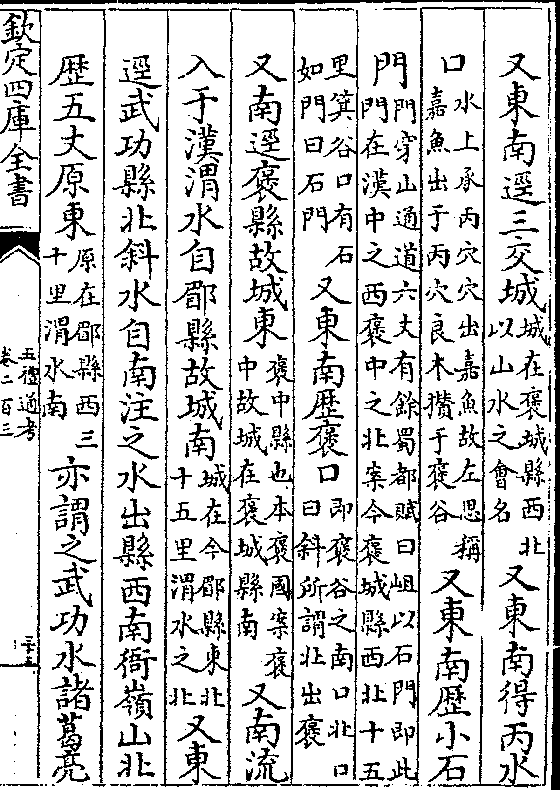 又東南逕三交城城在褒城縣西北以山水之會名又東南得丙水
口水上承丙穴穴出嘉魚故左思稱嘉魚出于丙穴良木攢于褒谷又東南歷小石
門門穿山通道六丈有餘蜀都賦曰岨以石門即此門在漢中之西褒中之北案今褒城縣西北十五
里箕谷口有石如門曰石門又東南歷褒口即褒谷之南口北口曰斜所謂北出褒
又南逕褒縣故城東褒中縣也本褒國案褒中故城在褒城縣南又南流
入于漢渭水自郿縣故城南城在今郿縣東北十五里渭水之北又東
逕武功縣北斜水自南注之水出縣西南衙嶺山北
歴五丈原東原在郿縣西三十里渭水南亦謂之武功水諸葛亮
欽定四庫全書
五禮通考
卷二百三